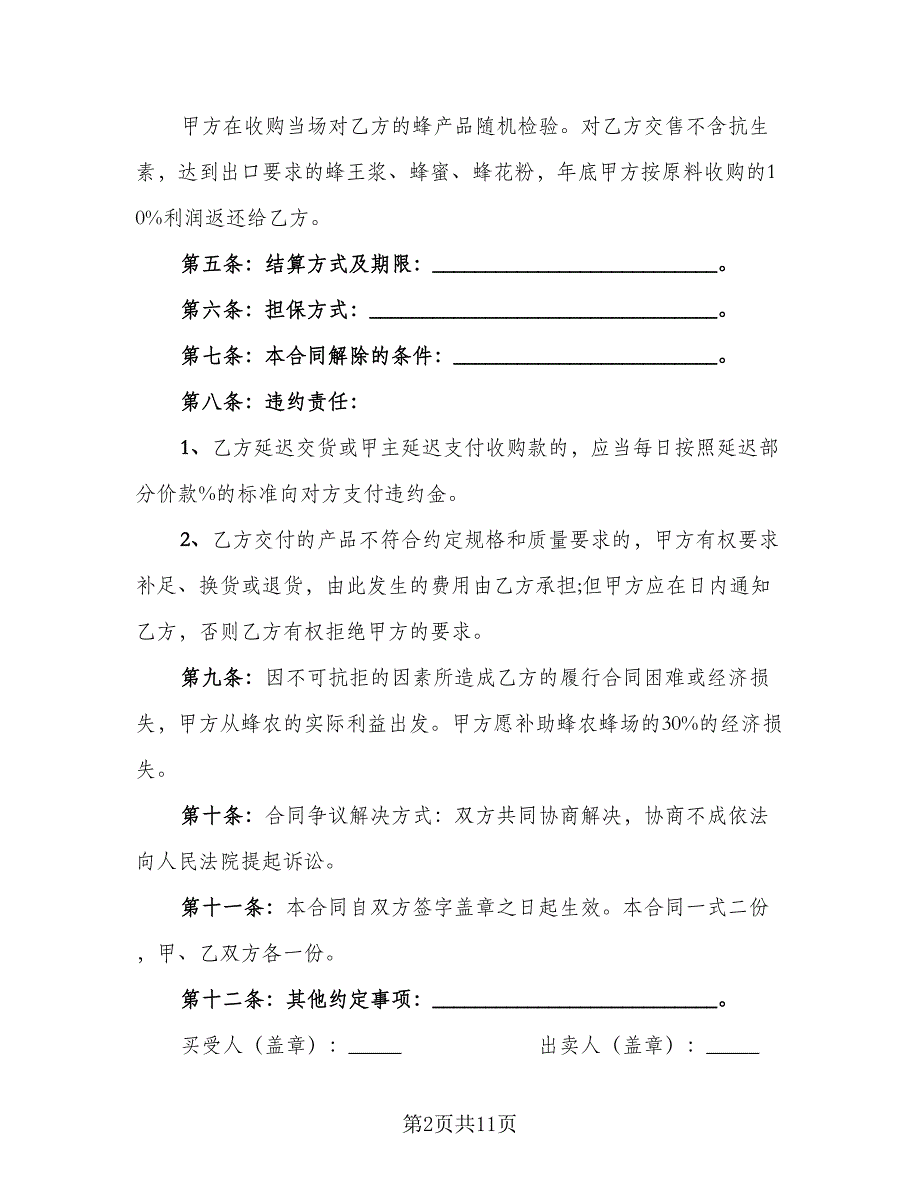 甲方在收购当场对乙方的蜂产品随机检验。对乙方交售不含抗生
素，达到出口要求的蜂王浆、蜂蜜、蜂花粉，年底甲方按原料收购的1
0%利润返还给乙方。
第五条：结算方式及期限：___________________________。
第六条：担保方式：_________________________________。
第七条：本合同解除的条件：_________________________。
第八条：违约责任：
1、乙方延迟交货或甲主延迟支付收购款的，应当每日按照延迟部
分价款%的标准向对方支付违约金。
2、乙方交付的产品不符合约定规格和质量要求的，甲方有权要求
补足、换货或退货，由此发生的费用由乙方承担;但甲方应在日内通知
乙方，否则乙方有权拒绝甲方的要求。
第九条：因不可抗拒的因素所造成乙方的履行合同困难或经济损
失，甲方从蜂农的实际利益出发。甲方愿补助蜂农蜂场的30%的经济损
失。
第十条：合同争议解决方式：双方共同协商解决，协商不成依法
向人民法院提起诉讼。
第十一条：本合同自双方签字盖章之日起生效。本合同一式二份
，甲、乙双方各一份。
第十二条：其他约定事项：___________________________。
买受人（盖章）：_____ 出卖人（盖章）：_____
第2页共11页